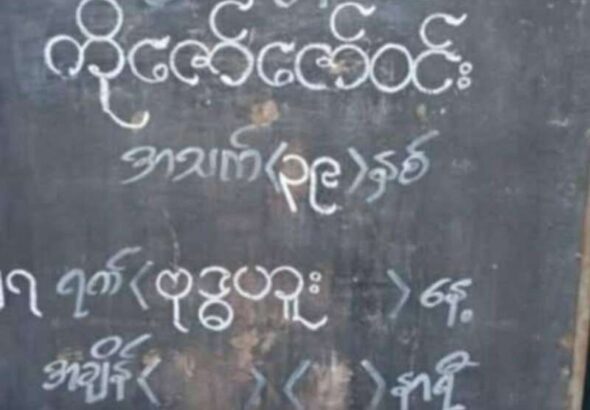 ကိုဇော်ဇော်ဝင်း
အသက်<၃၉>နှစ်
၇ ရက်<ဗုဒ္ဓဟူး >နေ့
အချိန်< > < >နာရီ